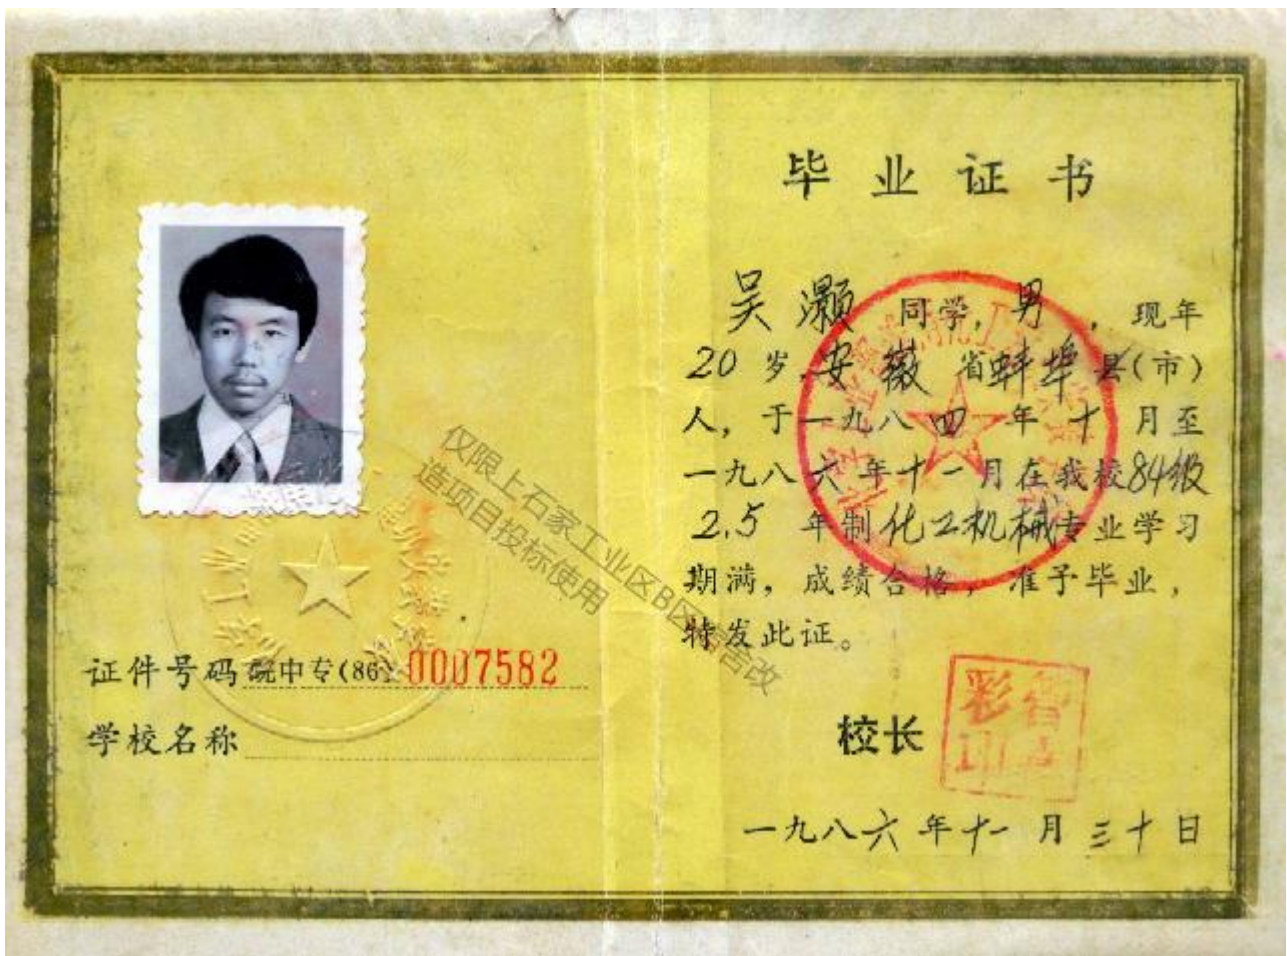 证件号码 皖中专(86) 0007582
学校名称
仅限上石家工业区B区
造项目投标使用
毕业证书
吴灏 同学, 男, 现年
20 岁, 安徽 省蚌埠县(市)
人, 于一九八四 年 十 月至
一九八六年十一月在我校84级
2.5 年制化工机械专业学习
期满, 成绩合格, 准予毕业,
特发此证。
校长
一九八六年十一月三十日